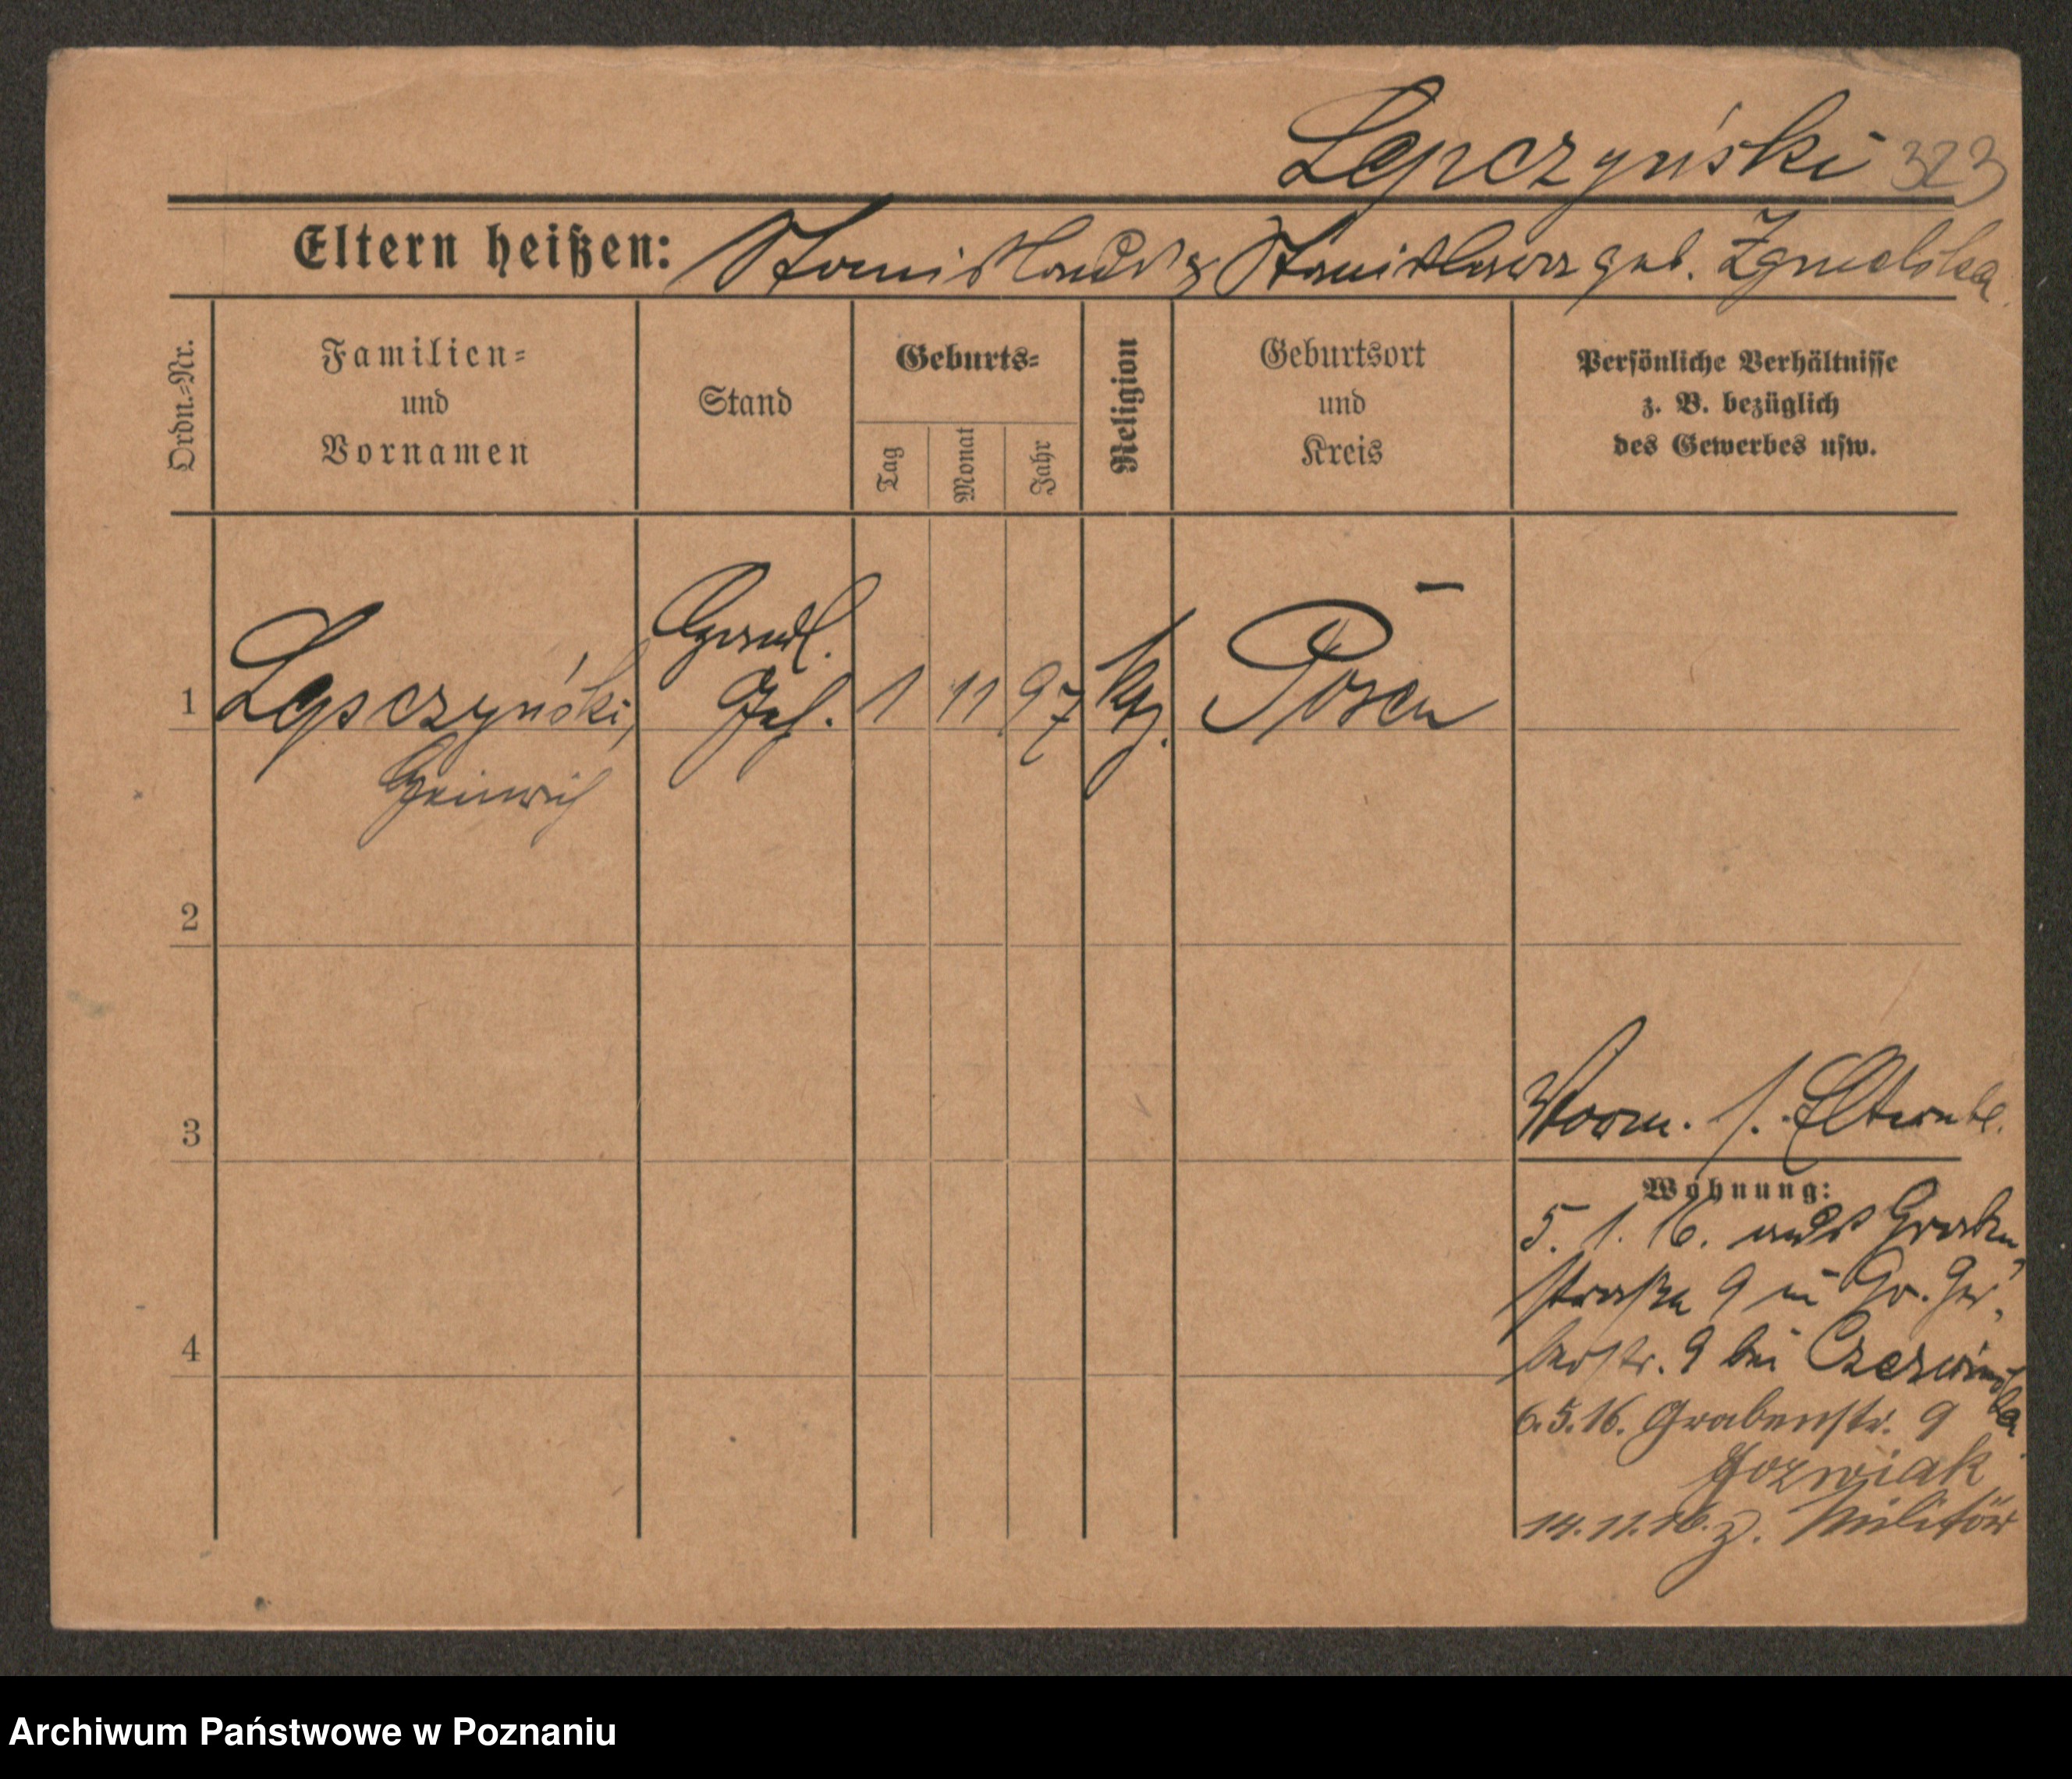 Lepczyński 323
Eltern heißen: Stanislaus & Stanislawa geb.
Ordn.=Nr.
Familien=
und
Vornamen
Stand
Geburts=
Tag
Monat
Jahr
Religion
Geburtsort
und
Kreis
Persönliche Verhältnisse
z. B. bezüglich
des Gewerbes usw.
1 Lepczyński, Handl. Geh. 1 11 97 kg. Posen
Heinrich
2
3
Vorm. s. Elternbl.
Wohnung:
5. 1. 16. aus Graben
straße 9 in Gr. Ger
berstr. 9 bei Czerwinska
4
6.5.16. Grabenstr. 9
Jozwiak
14.11.16. z. Militär
Archiwum Państwowe w Poznaniu